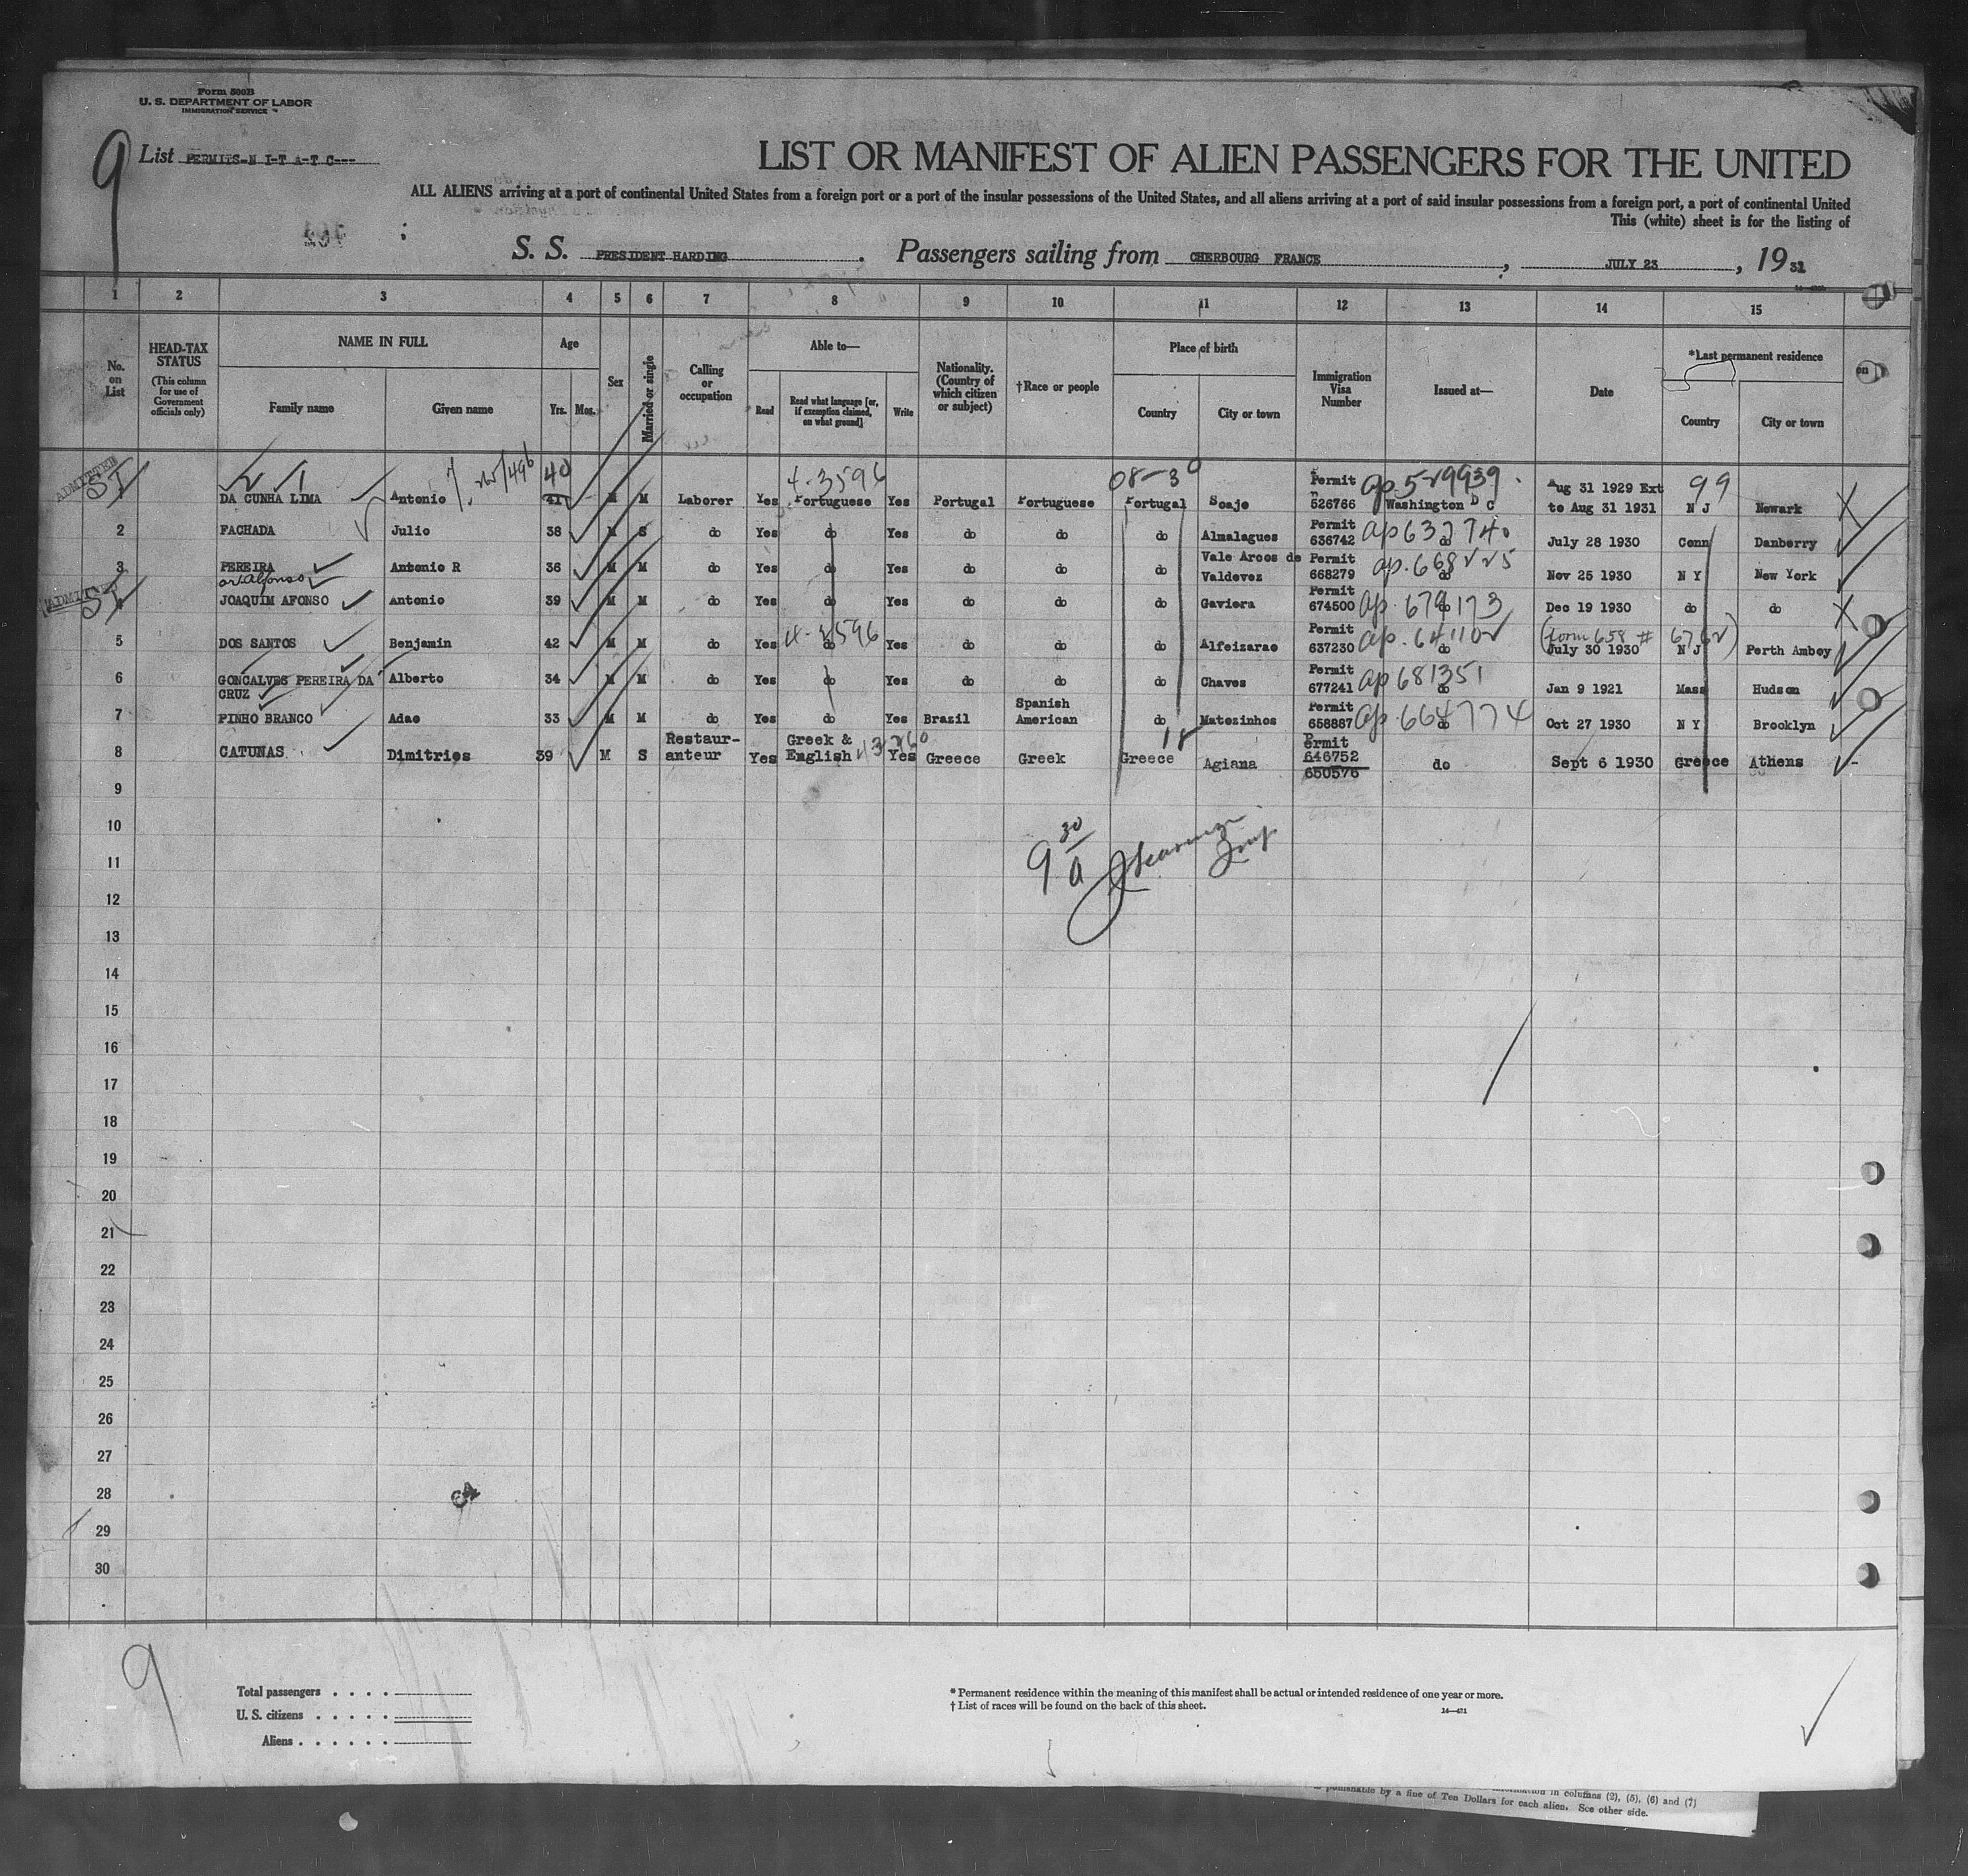 Form 500B
U. S. DEPARTMENT OF LABOR
IMMIGRATION SERVICE
9 List PERMITS-N I-T A-T C---
LIST OR MANIFEST OF ALIEN PASSENGERS FOR THE UNITED
ALL ALIENS arriving at a port of continental United States from a foreign port or a port of the insular possessions of the United States, and all aliens arriving at a port of said insular possessions from a foreign port, a port of continental United
This (white) sheet is for the listing of
S. S. PRESIDENT HARDING . Passengers sailing from CHERBOURG FRANCE , JULY 23 , 19 31
1 2 3 4 5 6 7 8 9 10 11 12 13 14 15
No. on List
HEAD-TAX STATUS
(This column for use of Government officials only)
NAME IN FULL
Family name Given name
Age
Yrs. Mos.
Sex
Married or single
Calling or occupation
Able to—
Read Read what language [or, if exemption claimed, on what ground] Write
Nationality. (Country of which citizen or subject)
†Race or people
Place of birth
Country City or town
Immigration Visa Number
Issued at—
Date
*Last permanent residence
Country City or town
ADMITTED SI DA CUNHA LIMA Antonio 40 41 M M Laborer Yes 4-3596 Portuguese Yes Portugal Portuguese 08-30 Portugal Soajo Permit 526766 ap. 529939. Washington D C Aug 31 1929 Ext to Aug 31 1931 99 N J Newark X
2 FACHADA Julio 38 M S do Yes do Yes do do do Almalagues Permit 636742 ap 632740 do July 28 1930 Conn Danberry
3 PEREIRA Antonio R 36 M M do Yes do Yes do do do Vale Arcos de Valdevez Permit 668279 ap. 668225 do Nov 25 1930 N Y New York
ADMITTED SI or Alfonso JOAQUIM AFONSO Antonio 39 M M do Yes do Yes do do do Gaviera Permit 674500 ap. 674173 do Dec 19 1930 do do X
5 DOS SANTOS Benjamin 42 M M do Yes 4-3596 do Yes do do do Alfeizarao Permit 637230 ap. 641102 do (form 658 # 6762) July 30 1930 N J Perth Amboy
6 GONCALVES PEREIRA DA CRUZ Alberto 34 M M do Yes do Yes do do do Chaves Permit 677241 ap 681351 do Jan 9 1921 Mass Hudson
7 PINHO BRANCO Adao 33 M M do Yes do Yes Brazil Spanish American do Matozinhos Permit 658887 ap. 664774 do Oct 27 1930 N Y Brooklyn
8 CATUNAS Dimitrios 39 M S Restauranteur Yes Greek & English Yes Greece Greek Greece Agiana Permit 646752 650576 do Sept 6 1930 Greece Athens
9
10
11
9 30 a
12
13
14
15
16
17
18
19
20
21
22
23
24
25
26
27
28
29
30
9
Total passengers . . . .
U. S. citizens . . . . .
Aliens . . . . . .
* Permanent residence within the meaning of this manifest shall be actual or intended residence of one year or more.
† List of races will be found on the back of this sheet.
14—471
in columns (2), (5), (6) and (7)
punishable by a fine of Ten Dollars for each alien. See other side.